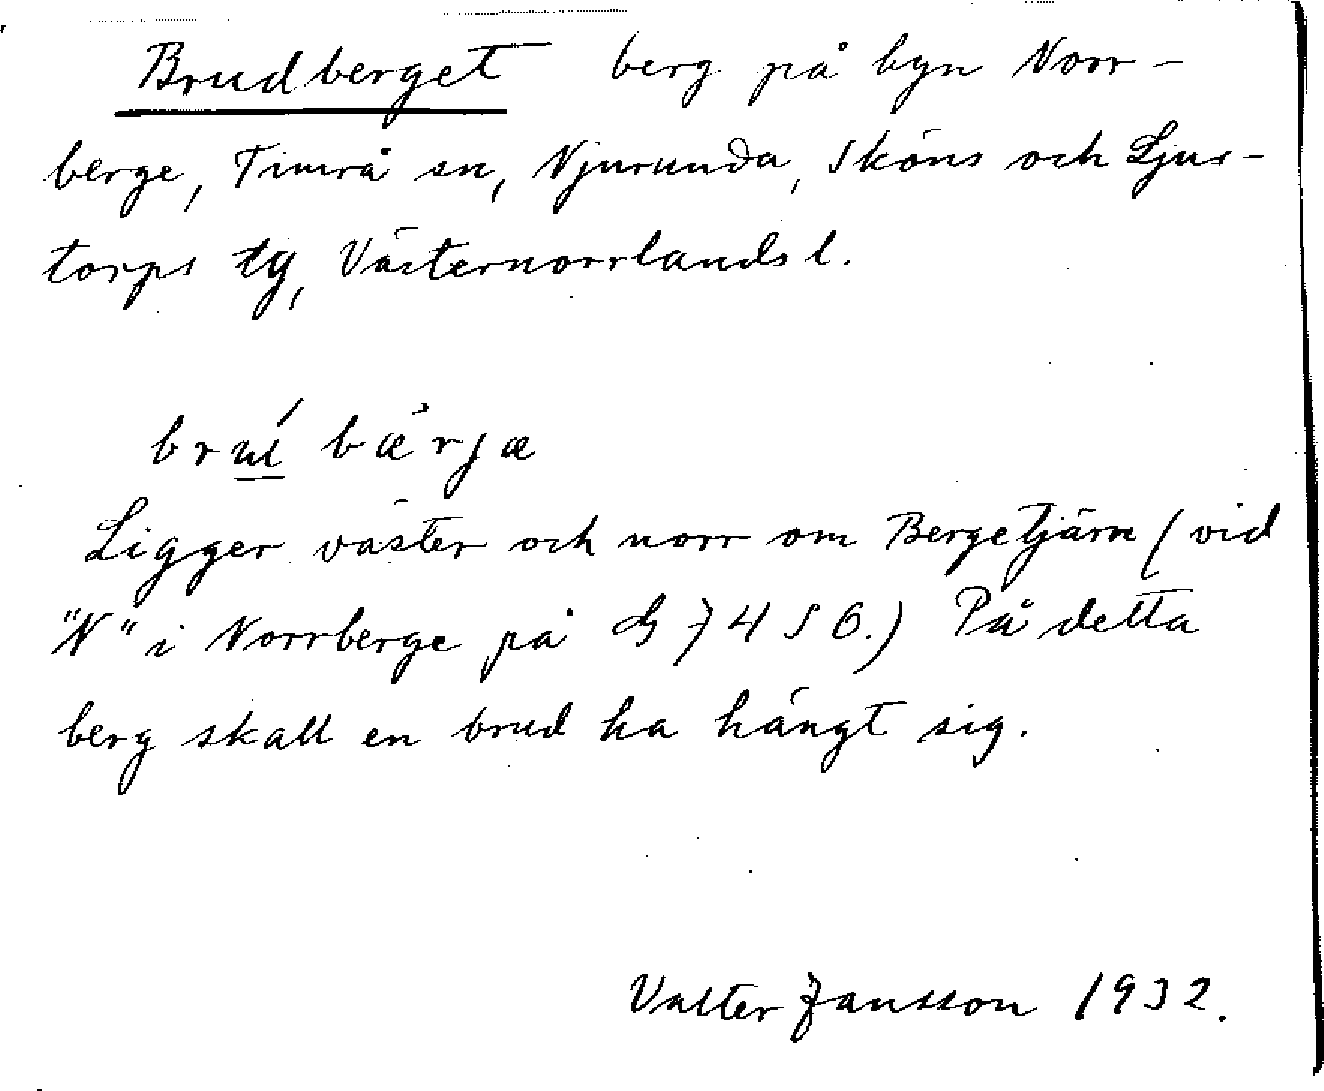 Brudberget berg på byn Norr-
berge, Timrå sn, Njurunda, Sköns och Ljus-
torps tg, Västernorrlands l.
bru̲í bǽrjæ
Ligger väster och norr om Bergetjärn (vid
"N" i Norrberge på 74 S 6.) På detta
berg skall en brud ha hängt sig.
Valter Jansson 1932.